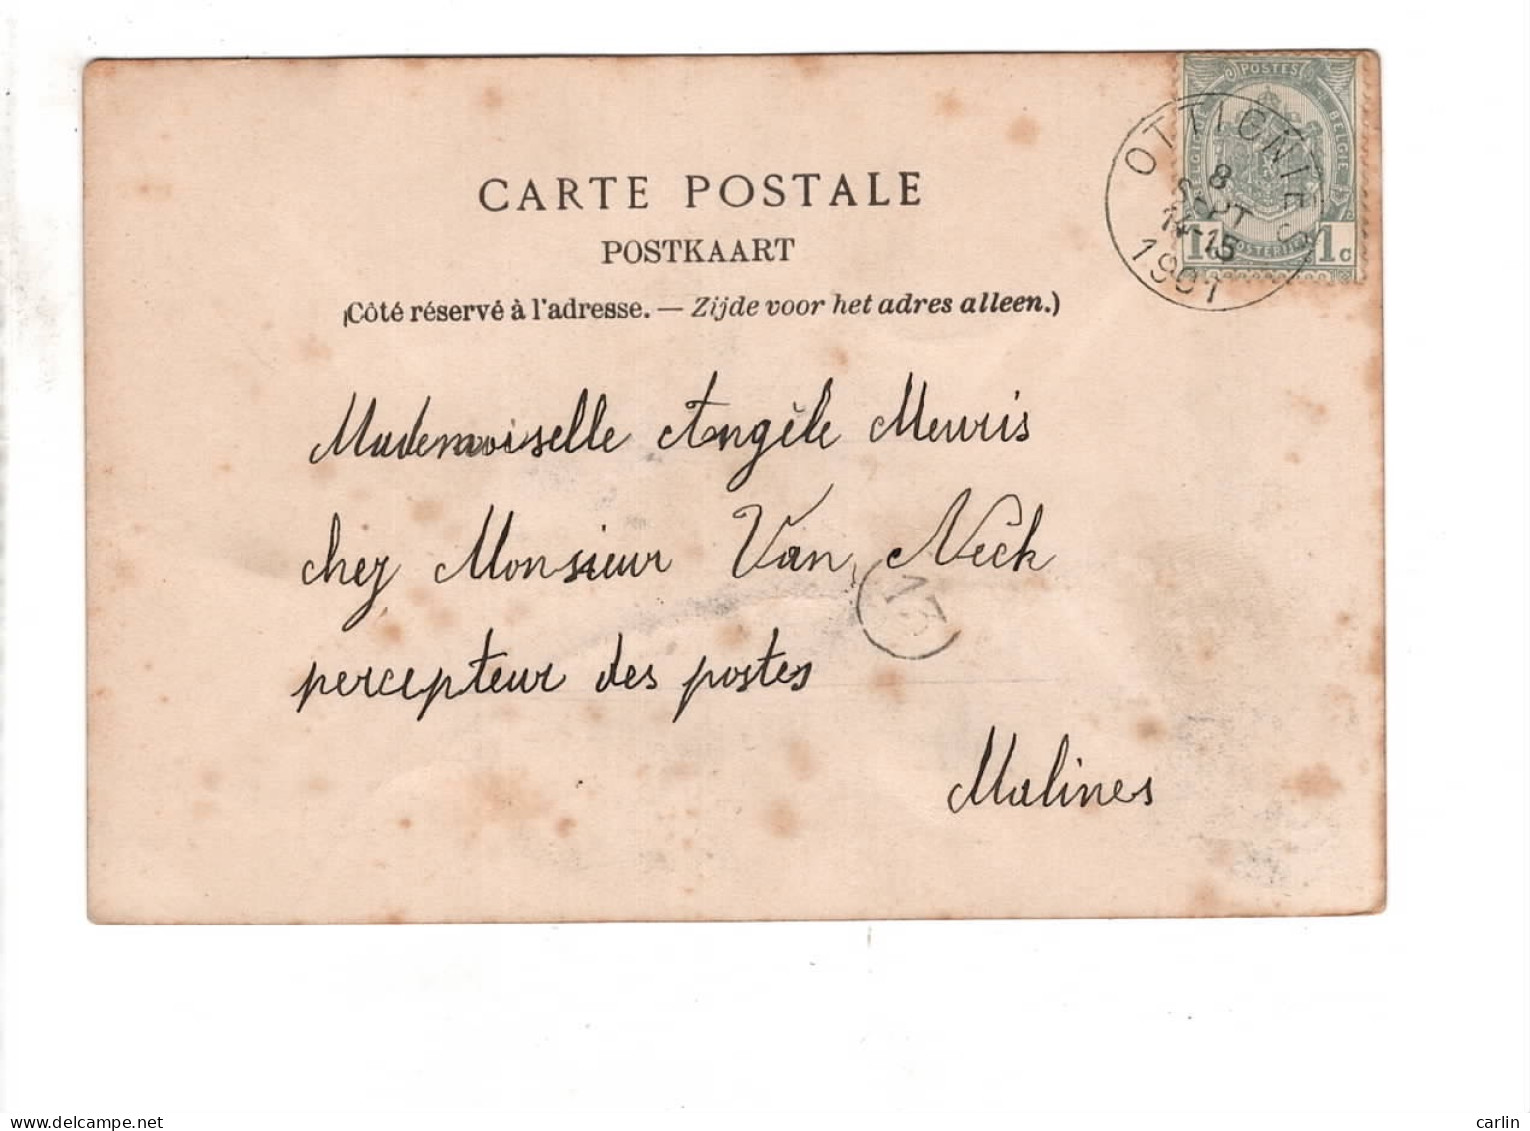 CARTE POSTALE
POSTKAART
(Côté réservé à l'adresse. — Zijde voor het adres alleen.)
POSTES
BELGIQUE
BELGIE
POSTERIJEN
1c 1c
OTTIGNIES
8
SEPT
14-15
1901
Mademoiselle Angèle Meuris
chez Monsieur Van Neck
13
percepteur des postes
Malines
delcampe.net
carlin